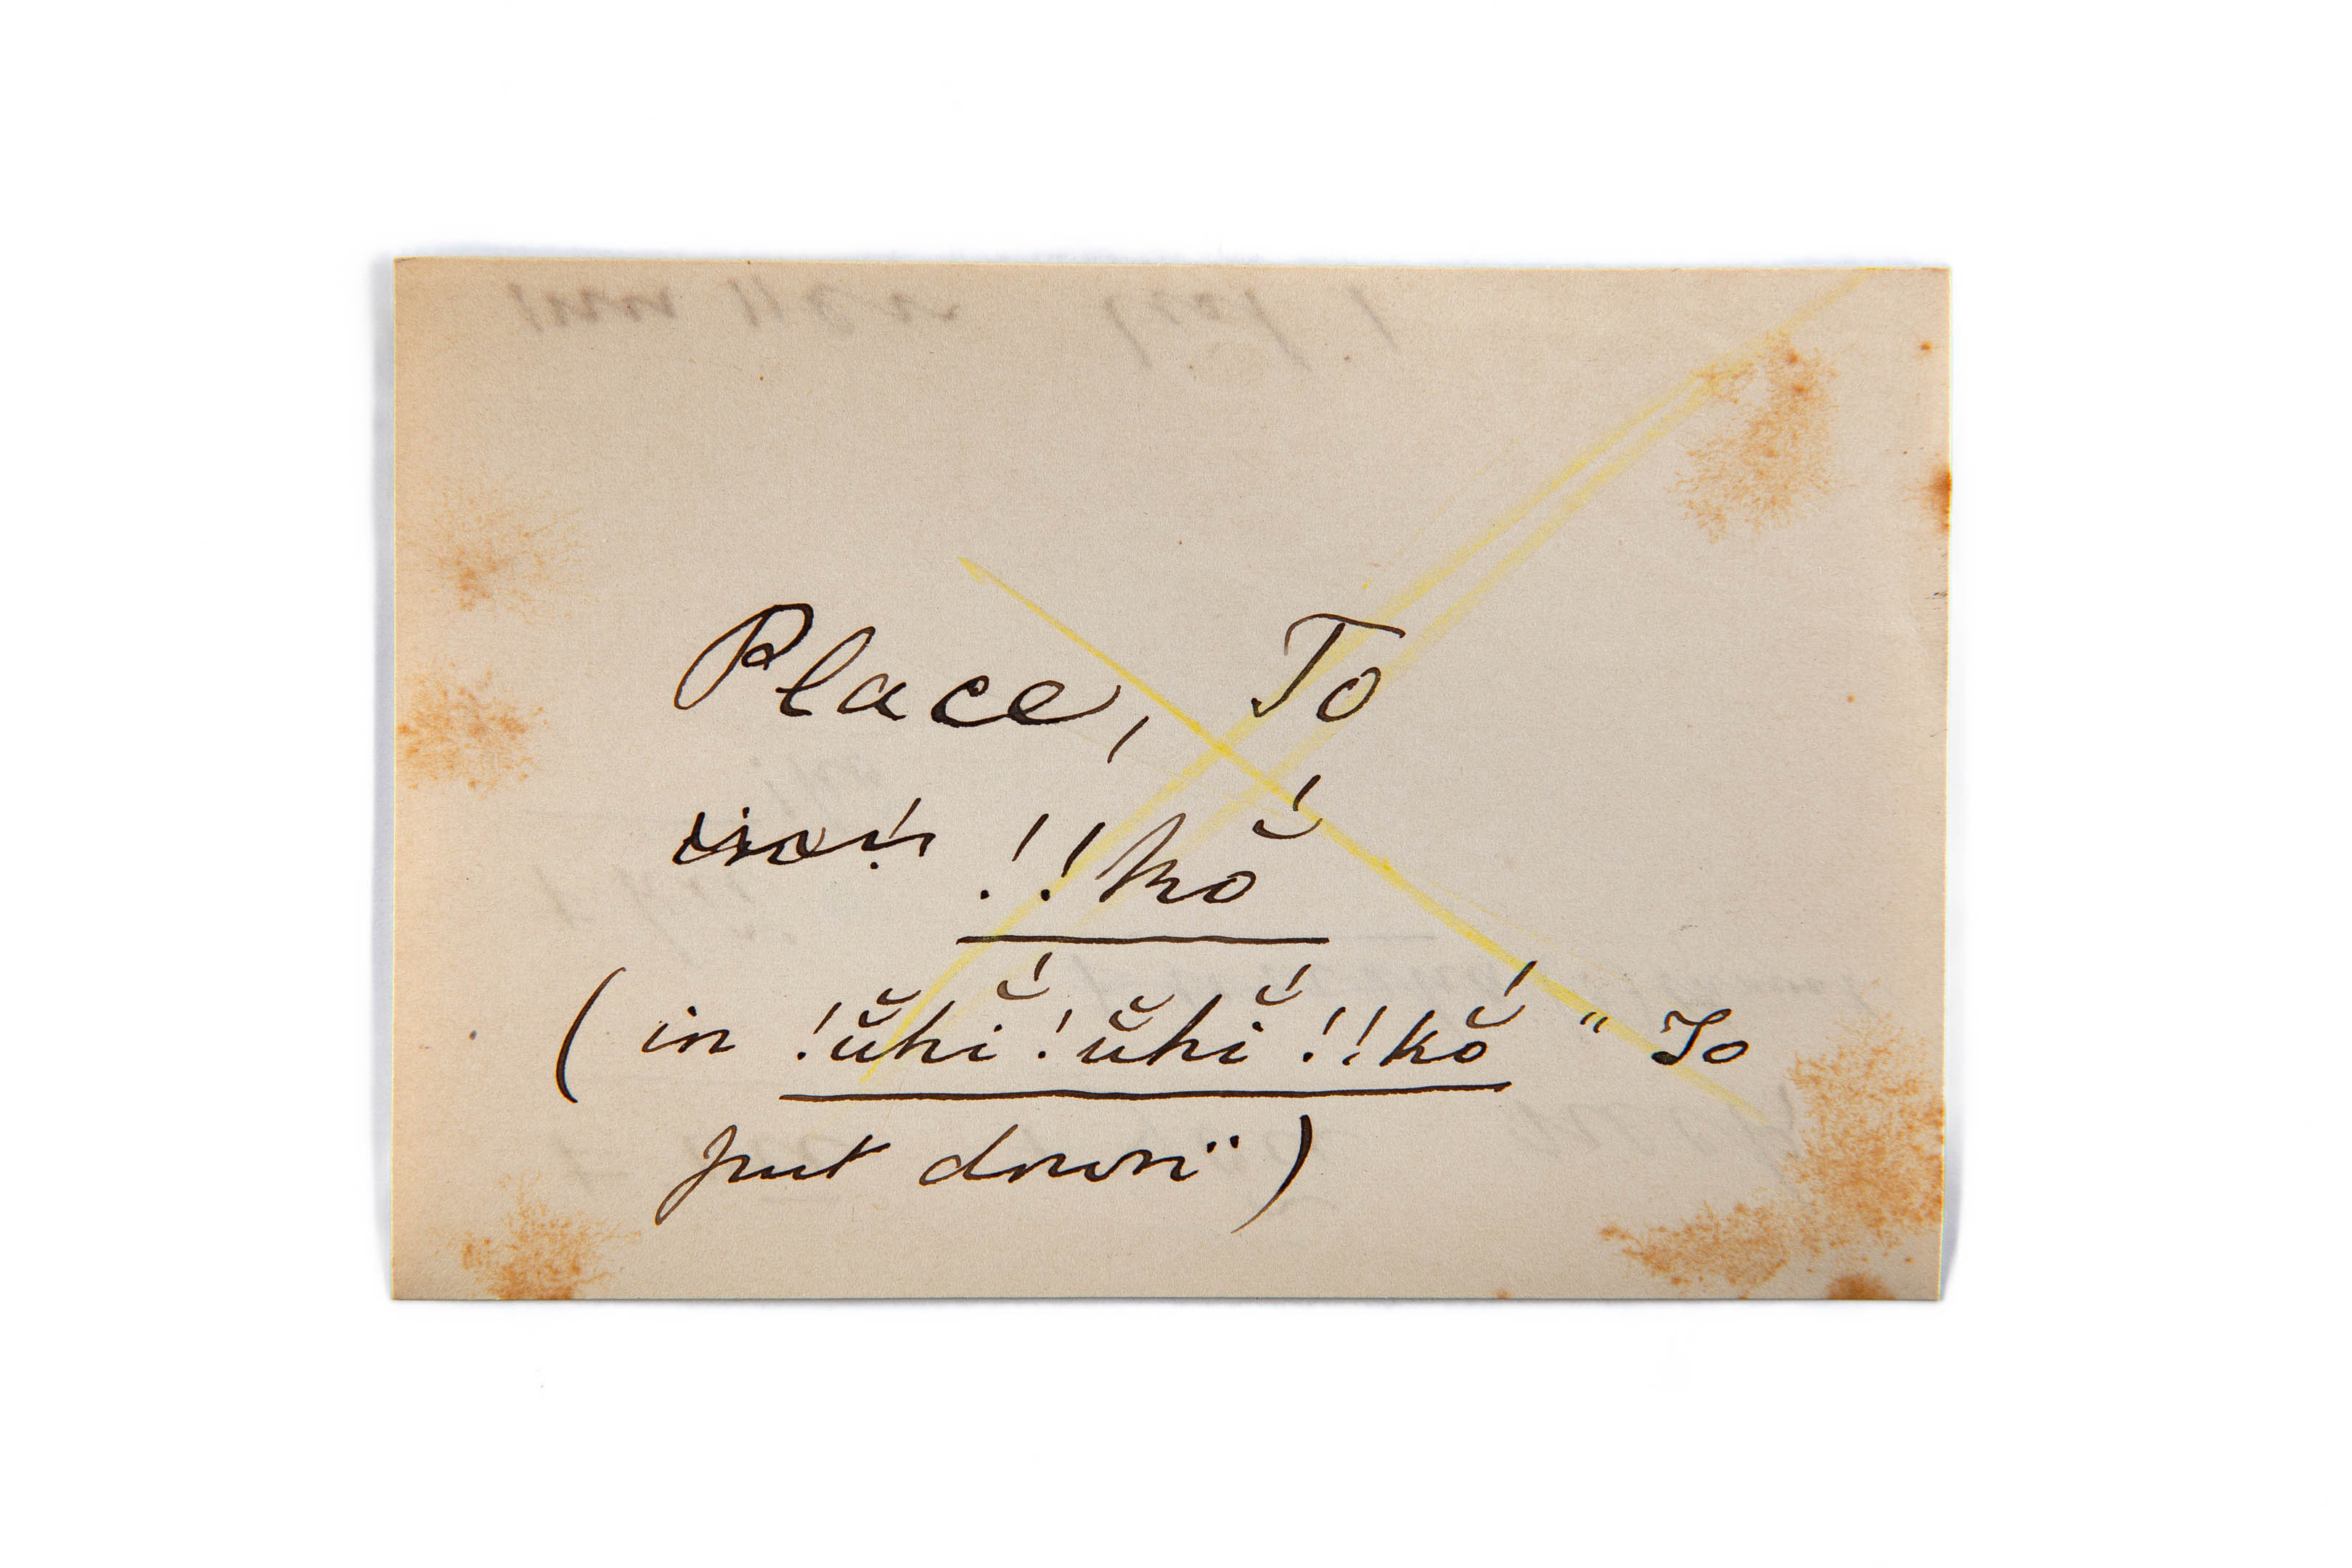 Place, To
!!kŏ́
(in !ŭhĭ́ !ŭhĭ́ !!kŏ́ " To
put down")